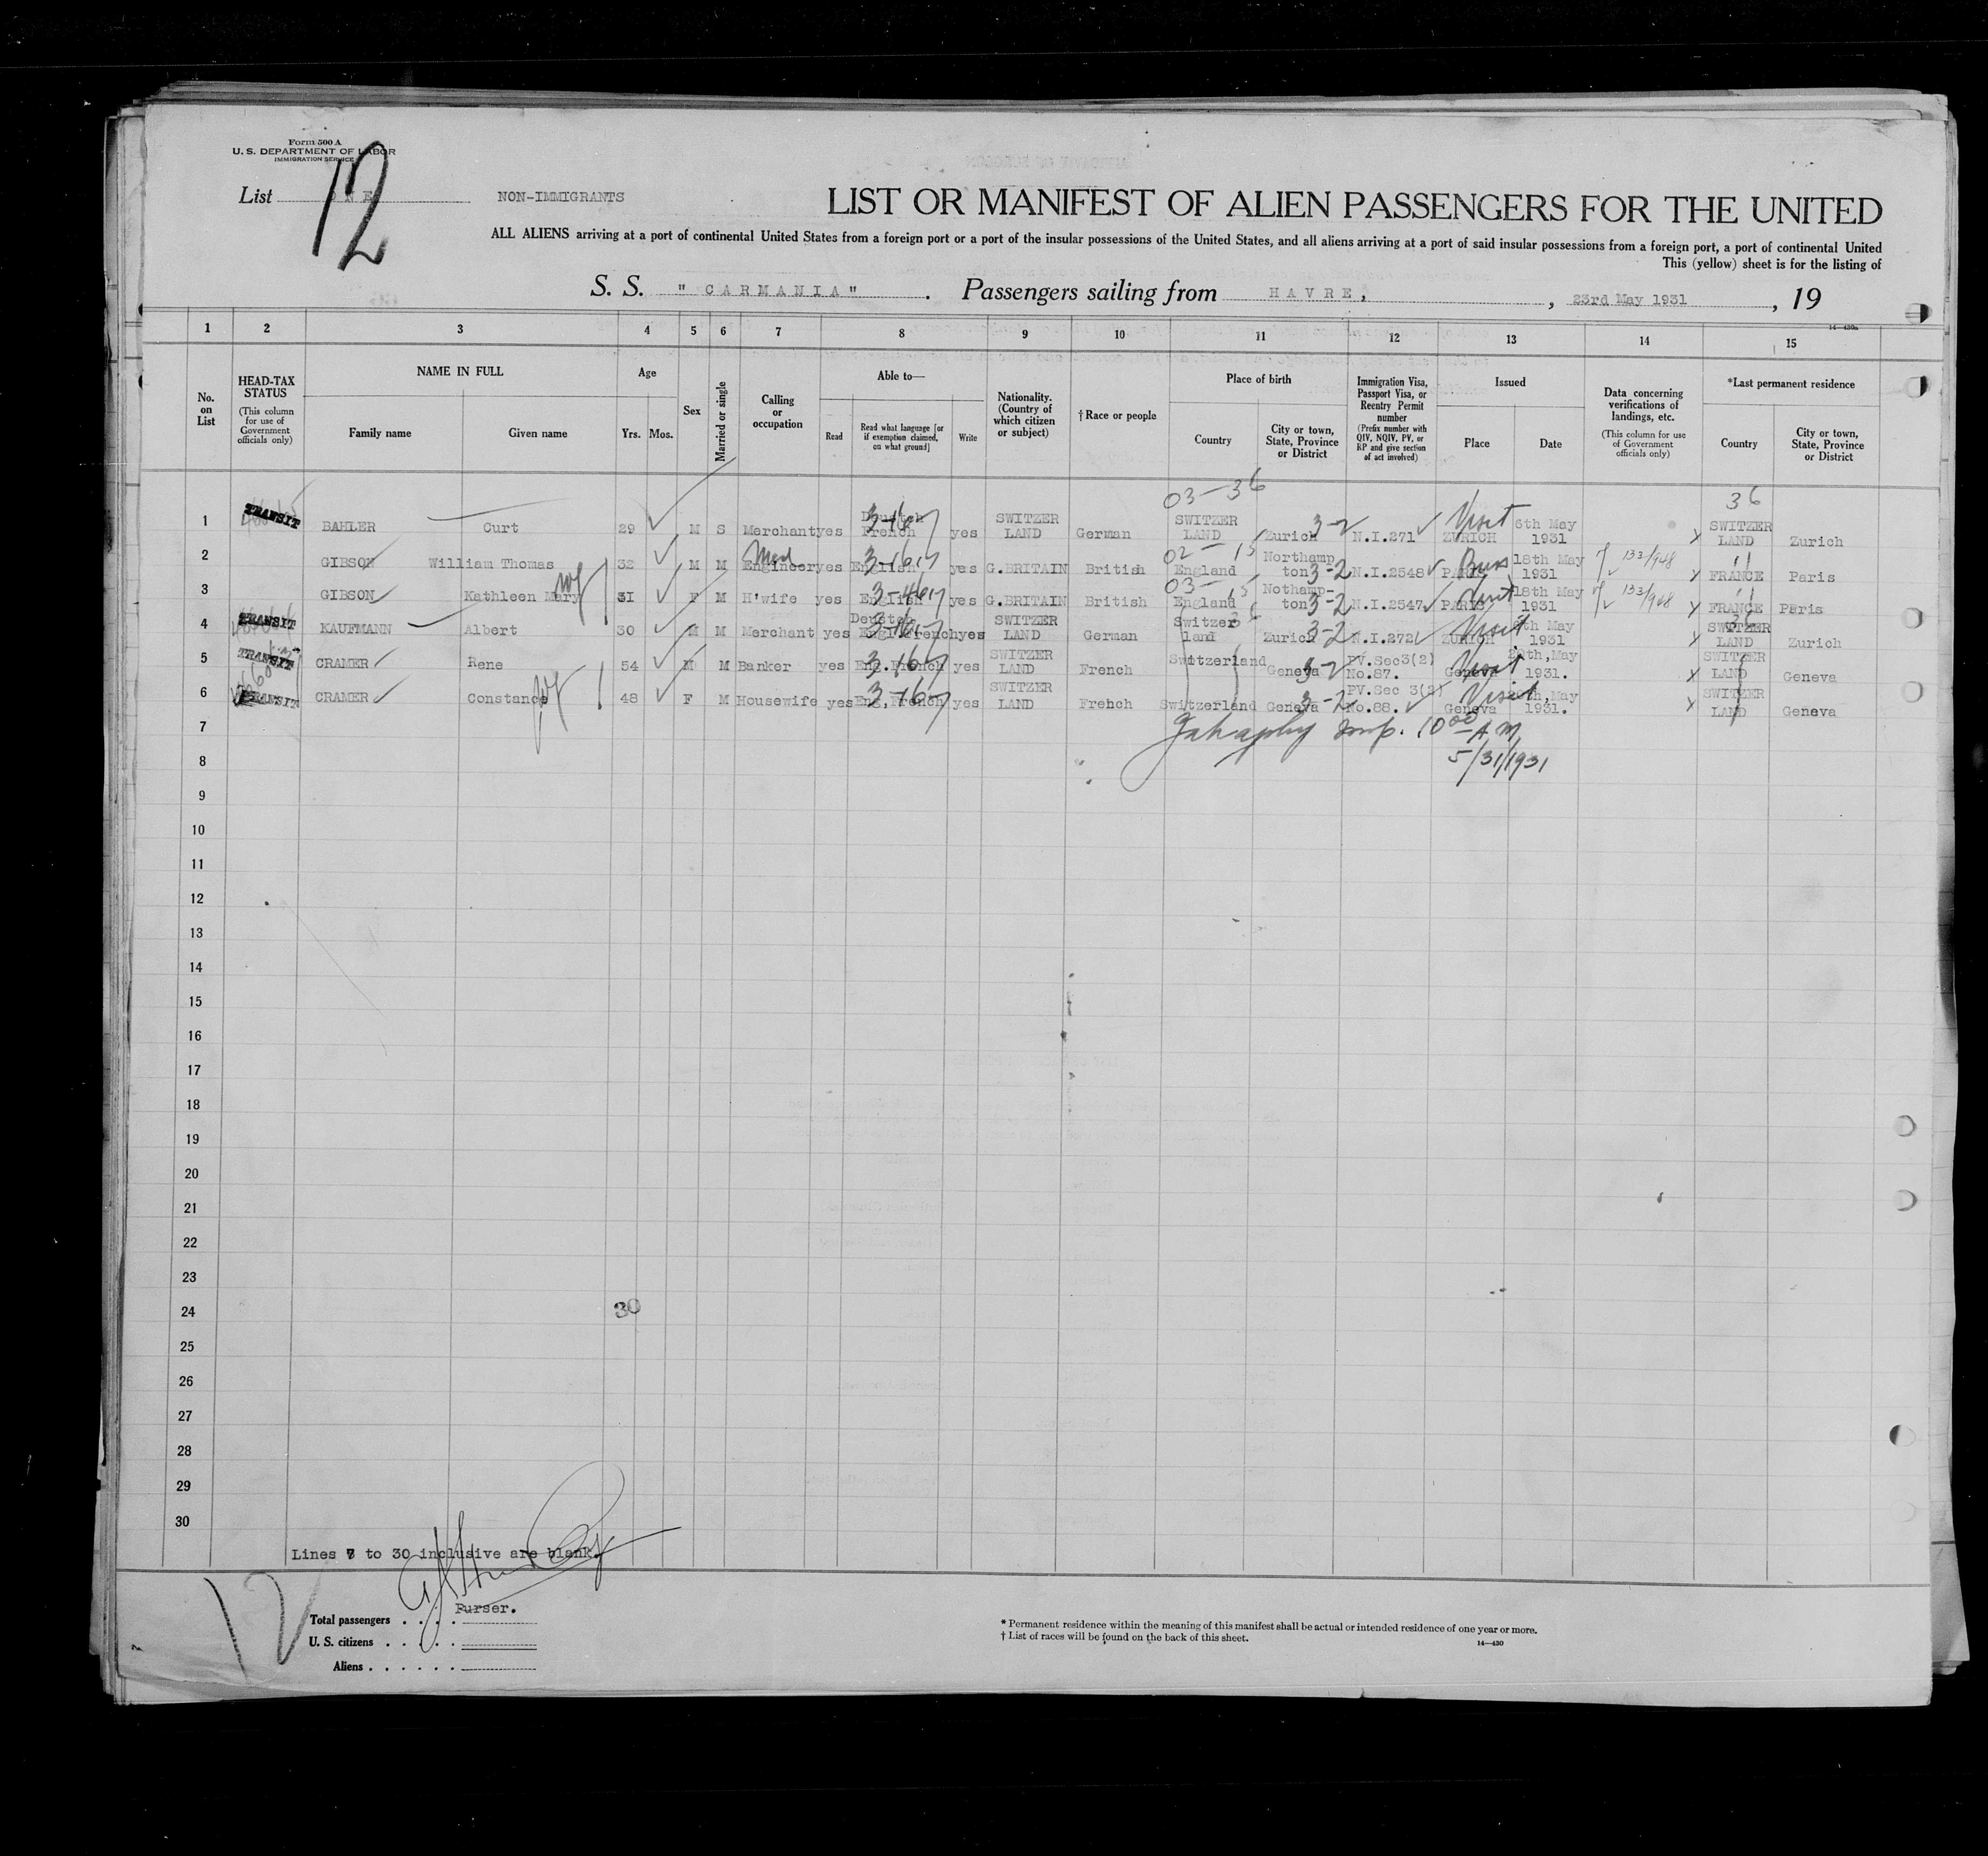 Form 500 A
U. S. DEPARTMENT OF LABOR
IMMIGRATION SERVICE
List ONE
12
NON-IMMIGRANTS
LIST OR MANIFEST OF ALIEN PASSENGERS FOR THE UNITED
ALL ALIENS arriving at a port of continental United States from a foreign port or a port of the insular possessions of the United States, and all aliens arriving at a port of said insular possessions from a foreign port, a port of continental United
This (yellow) sheet is for the listing of
S. S. "CARMANIA". Passengers sailing from HAVRE, , 23rd May 1931 , 19
14—430a
1 2 3 4 5 6 7 8 9 10 11 12 13 14 15
No. on List
HEAD-TAX STATUS (This column for use of Government officials only)
NAME IN FULL
Family name
Given name
Age
Yrs. Mos.
Sex
Married or single
Calling or occupation
Able to—
Read
Read what language [or if exemption claimed, on what ground]
Write
Nationality. (Country of which citizen or subject)
†Race or people
Place of birth
Country
City or town, State, Province or District
Immigration Visa, Passport Visa, or Reentry Permit number (Prefix number with QIV, NQIV, PV, or RP and give section of act involved)
Issued
Place
Date
Data concerning verifications of landings, etc. (This column for use of Government officials only)
*Last permanent residence
Country
City or town, State, Province or District
03-36 36
1 TRANSIT BAHLER Curt 29 M S Merchant yes French yes SWITZER LAND German SWITZER LAND Zurich 3-2 N.I.271 ZURICH Visit 6th May 1931 SWITZER LAND Zurich
2 GIBSON William Thomas 32 M M Engineer yes English yes G.BRITAIN British England Northampton 3-2 N.I.2548 PARIS Buss 18th May 1931 133/948 FRANCE Paris
3 GIBSON Kathleen Mary wf 31 F M H'wife yes English yes G.BRITAIN British England Nothampton 3-2 N.I.2547 PARIS Visit 18th May 1931 133/948 FRANCE Paris
4 TRANSIT KAUFMANN Albert 30 M M Merchant yes French yes SWITZER LAND German Switzer land Zurich 3-2 N.I.272 ZURICH Visit 6th May 1931 SWITZER LAND Zurich
5 TRANSIT CRAMER Rene 54 M M Banker yes Eng. French yes SWITZER LAND French Switzerland Geneva 3-2 PV.Sec3(2) No.87. Geneva Visit 20th, May 1931. SWITZER LAND Geneva
6 TRANSIT CRAMER Constance wf 48 F M Housewife yes Eng, French yes SWITZER LAND French Switzerland Geneva 3-2 PV.Sec 3(2) No.88. Geneva Visit 20th, May 1931. SWITZER LAND Geneva
7 10 00 A M
8 5/31/1931
9
10
11
12
13
14
15
16
17
18
19
20
21
22
23
24 30
25
26
27
28
29
30
Lines 7 to 30 inclusive are blank.
Purser.
12
Total passengers
U. S. citizens
Aliens
* Permanent residence within the meaning of this manifest shall be actual or intended residence of one year or more.
† List of races will be found on the back of this sheet.
14—430